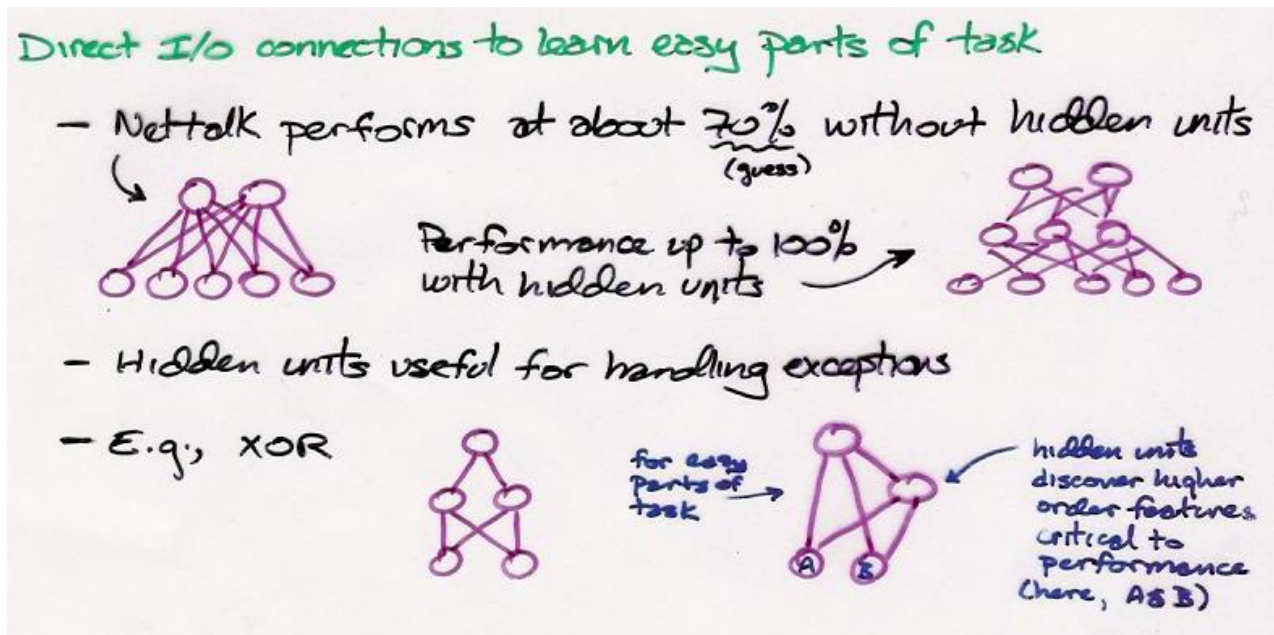 Direct I/O connections to learn easy parts of task
- Nettalk performs at about 70% without hidden units
(guess)
Performance up to 100%
with hidden units
- Hidden units useful for handling exceptions
- E.g., XOR
for easy
parts of
task
A
B
hidden units
discover higher
order features
critical to
performance
(here, A&B)